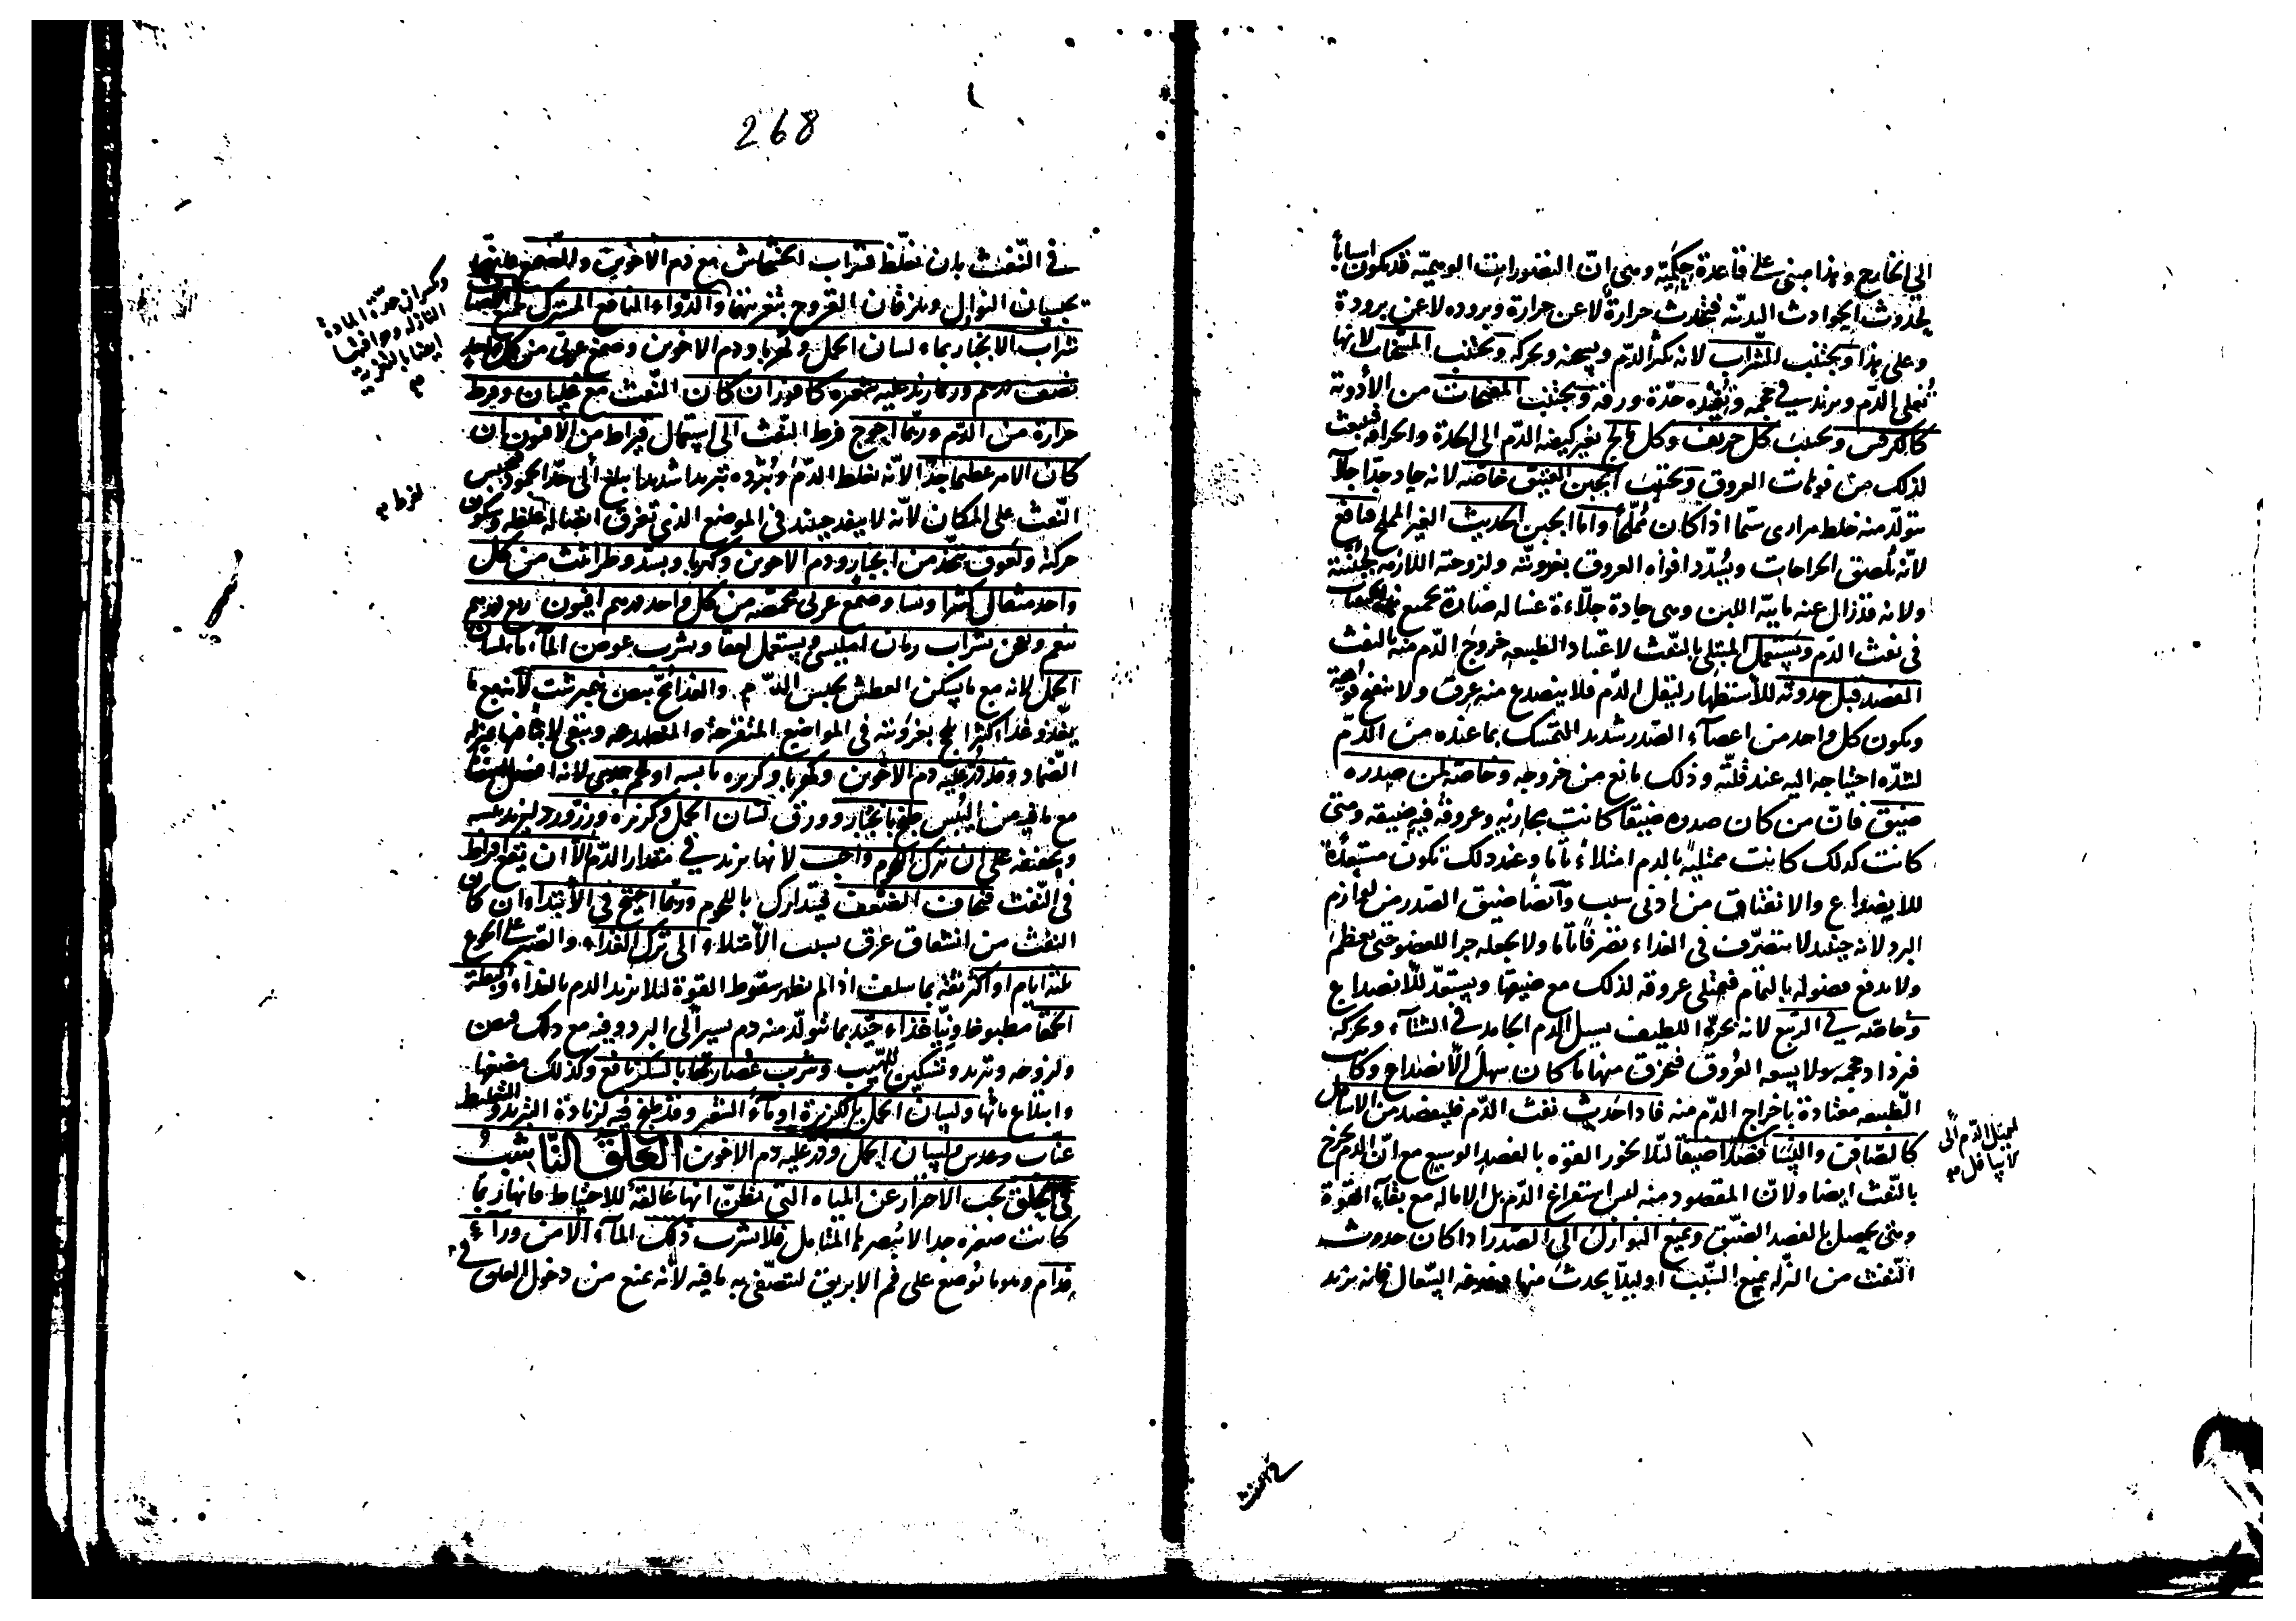 الى الخارج وهذا مبنى على قاعدة حكمية وهى ان التصورات الوهمية قد يكون اسبابا
لحدوث الحوادث البدنية فتحدث حرارة لا عن حرارة وبروده لا عن برودة
وعلى هذا ويجتنب الشراب لانه يكثر الدم ويسخنه ويحركه ويجتنب المسخنات لانها
تغلى الدم ويزيد في حجمه وتفيده حدّة ورقه ويجتنب المفتحات من الأدوية
كالكرفس ويجتنب كل حريف وكل مالح يغير كيفية الدم الى الحدة والحرافة فينبعث
لذلك من فوهات العروق ويجتنب الجبن العتيق خاصة لانه حاد جدا
يتولد منه خلط مرارى سيما اذا كان مملحا واما الجبن الحديث الغير المملح فنافع
لانه يلصق الجراحات ويسدد افواه العروق بغرويته ولزوجته اللازمة لجبنيته
ولانه قد زال عنه مائية اللبن وهى حادة جلاءة غسالة ضارة بجميع
فى نفث الدم ويستعمل المبتلى بالنفث لاعتياد الطبيعه خروج الدم منه بالنفث
الفصد قبل حدوثه للاستظهار ليقل الدم فلا ينصدع منه عرق ولا ينفتح فوهة
ويكون كل واحد من اعضاء الصدر شديد التمسك بما عنده من الدم
لشدة احتياجه اليه عند قلته وذلك مانع من خروجه وخاصة لمن صدره
ضيق فان من كان صدره ضيقا كانت مجاريه وعروقه فيه ضيقه ومتى
كانت كذلك كانت ممتلية بالدم امتلاء تاما وعند ذلك تكون مستعدة
للانصداع والانشقاق من ادنى سبب وايضا ضيق الصدر من لوازم
البرد لانه حينئذ لا يتصرف فى الغذاء تصرفا تاما ولا يجعله جزا للعضو حتى يعظم
ولا يدفع فضوله بالتمام فيمتلى عروقه لذلك مع ضيقها ويستعد للانصداع
وخاصه في الربيع لانه بحره اللطيف يسيل الدم الجامد في الشتاء ويحركه
فيزداد حجمه ولا يسعه العروق فيخرق منها ما كان سهل الانصداع وكانت
الطبيعه معتادة باخراج الدم منه فاذا حدث نفث الدم فليفصد من الاسافل
كالصافن والنسا فصدا ضيقا لئلا يخور القوه بالفصد الوسيع مع ان الدم يخرج
بالنفث ايضا ولان المقصود منه ليس استفراغ الدم بل الاماله مع بقاء القوة
وهى يحصل بالفصد الضيق ويمنع النوازل الى الصدر اذا كان حدوث
النفث من النزله بمنع السبب اولئلا يحدث منها السعال فانه يزيد
ليميل الدم الى
الاسافل
في النفث
268
في النفث بان يغلظ شراب الخشخاش مع دم الاخوين والصمغ فانهما
يحبسان النوازل ويلزقان القروح بتغريتهما والدواء النافع المشترك لجميع
شراب الانجبار بماء لسان الحمل وكهربا ودم الاخوين وصمغ عربى من كل واحد
نصف درهم وربما زيد عليه شعيره كافور ان كان النفث مع غليان وفرط
حرارة من الدم وربما احوج فرط النفث الى استعمال قيراط من الافيون ان
كان الامر عظيما جدا لانه يغلظ الدم ويبرده تبريدا شديدا يبلغ الى حد الجمود فيحبس
النفث على المكان لانه لا ينفذ حينئذ فى الموضع الذى تفرق اتصاله لغلظه وسكون
حركته ولعوق يتخذ من انجبار ودم الاخوين وكهربا وبسد وطراثيث من كل
واحد مثقال كثيرا ونشا وصمغ عربى محمصة من كل واحد درهم افيون ربع درهم
ينعم ويعجن بشراب رمان امليسى ويستعمل لعقا ويشرب عوض الماء ماء لسان
الحمل لانه مع ما يسكن العطش يحبس الدم والغذا مح بيض نيمبرشت لانه مع ما
يغذو غذاء كثيرا يلج بغرويته فى المواضع المتقرحة والمنصدعة ويبقى لاصقا بها بمنزلة
الضماد وقد ذر عليه دم الاخوين وكهربا وكزبره يابسه او لحم جدى لانه افضل
مع ما فيه من اليبس طبخ بانجبار وورق لسان الحمل وكزبره وزرورد ليزيد يبسه
وتجفيفه على ان ترك اللحوم واجب لانها يزيد في مقدار الدم الا ان يقع افراط
فى النفث فيخاف الضعف فيتدارك باللحوم وربما احتيج فى الابتداء وان كان
النفث من انشقاق عرق بسبب الامتلاء الى ترك الغذاء والصبر على الجوع
ثلثة ايام او اكثر ثقة بما سلف اذا لم يظهر سقوط القوة لئلا يزيد الدم بالغذاء والبقلة
الحمقا مطبوخا ونيا غذاء جيد بما يتولد منه دم يسير الى البرد وفيه مع ذلك قبض
ولزوجه وتبريد وتسكين للهيب وشرب عصارتها بالسكر نافع وكذلك مضغها
وابتلاع مائها ولسان الحمل بالكزبرة او ماء الشعير وقد طبخ فيه لزيادة التبريد والتغليظ
عناب وعدس ولسان الحمل وذر عليه دم الاخوين العلق الناشب
فى الحلق يجب الاحتراز عن المياه التى يظن انها عالقة للاحتياط فانها ربما
كانت صغيره جدا لا يبصرها المتامل فلا يشرب ذلك الماء الا من وراء
فدام وهو ما يوضع على فم الابريق لتصفى به ما فيه لانه يمنع من دخول العلق فى
وكسرانها حدة المادة
النازلة وحرافتها
ايضا بالتغرية
م
لفرط م